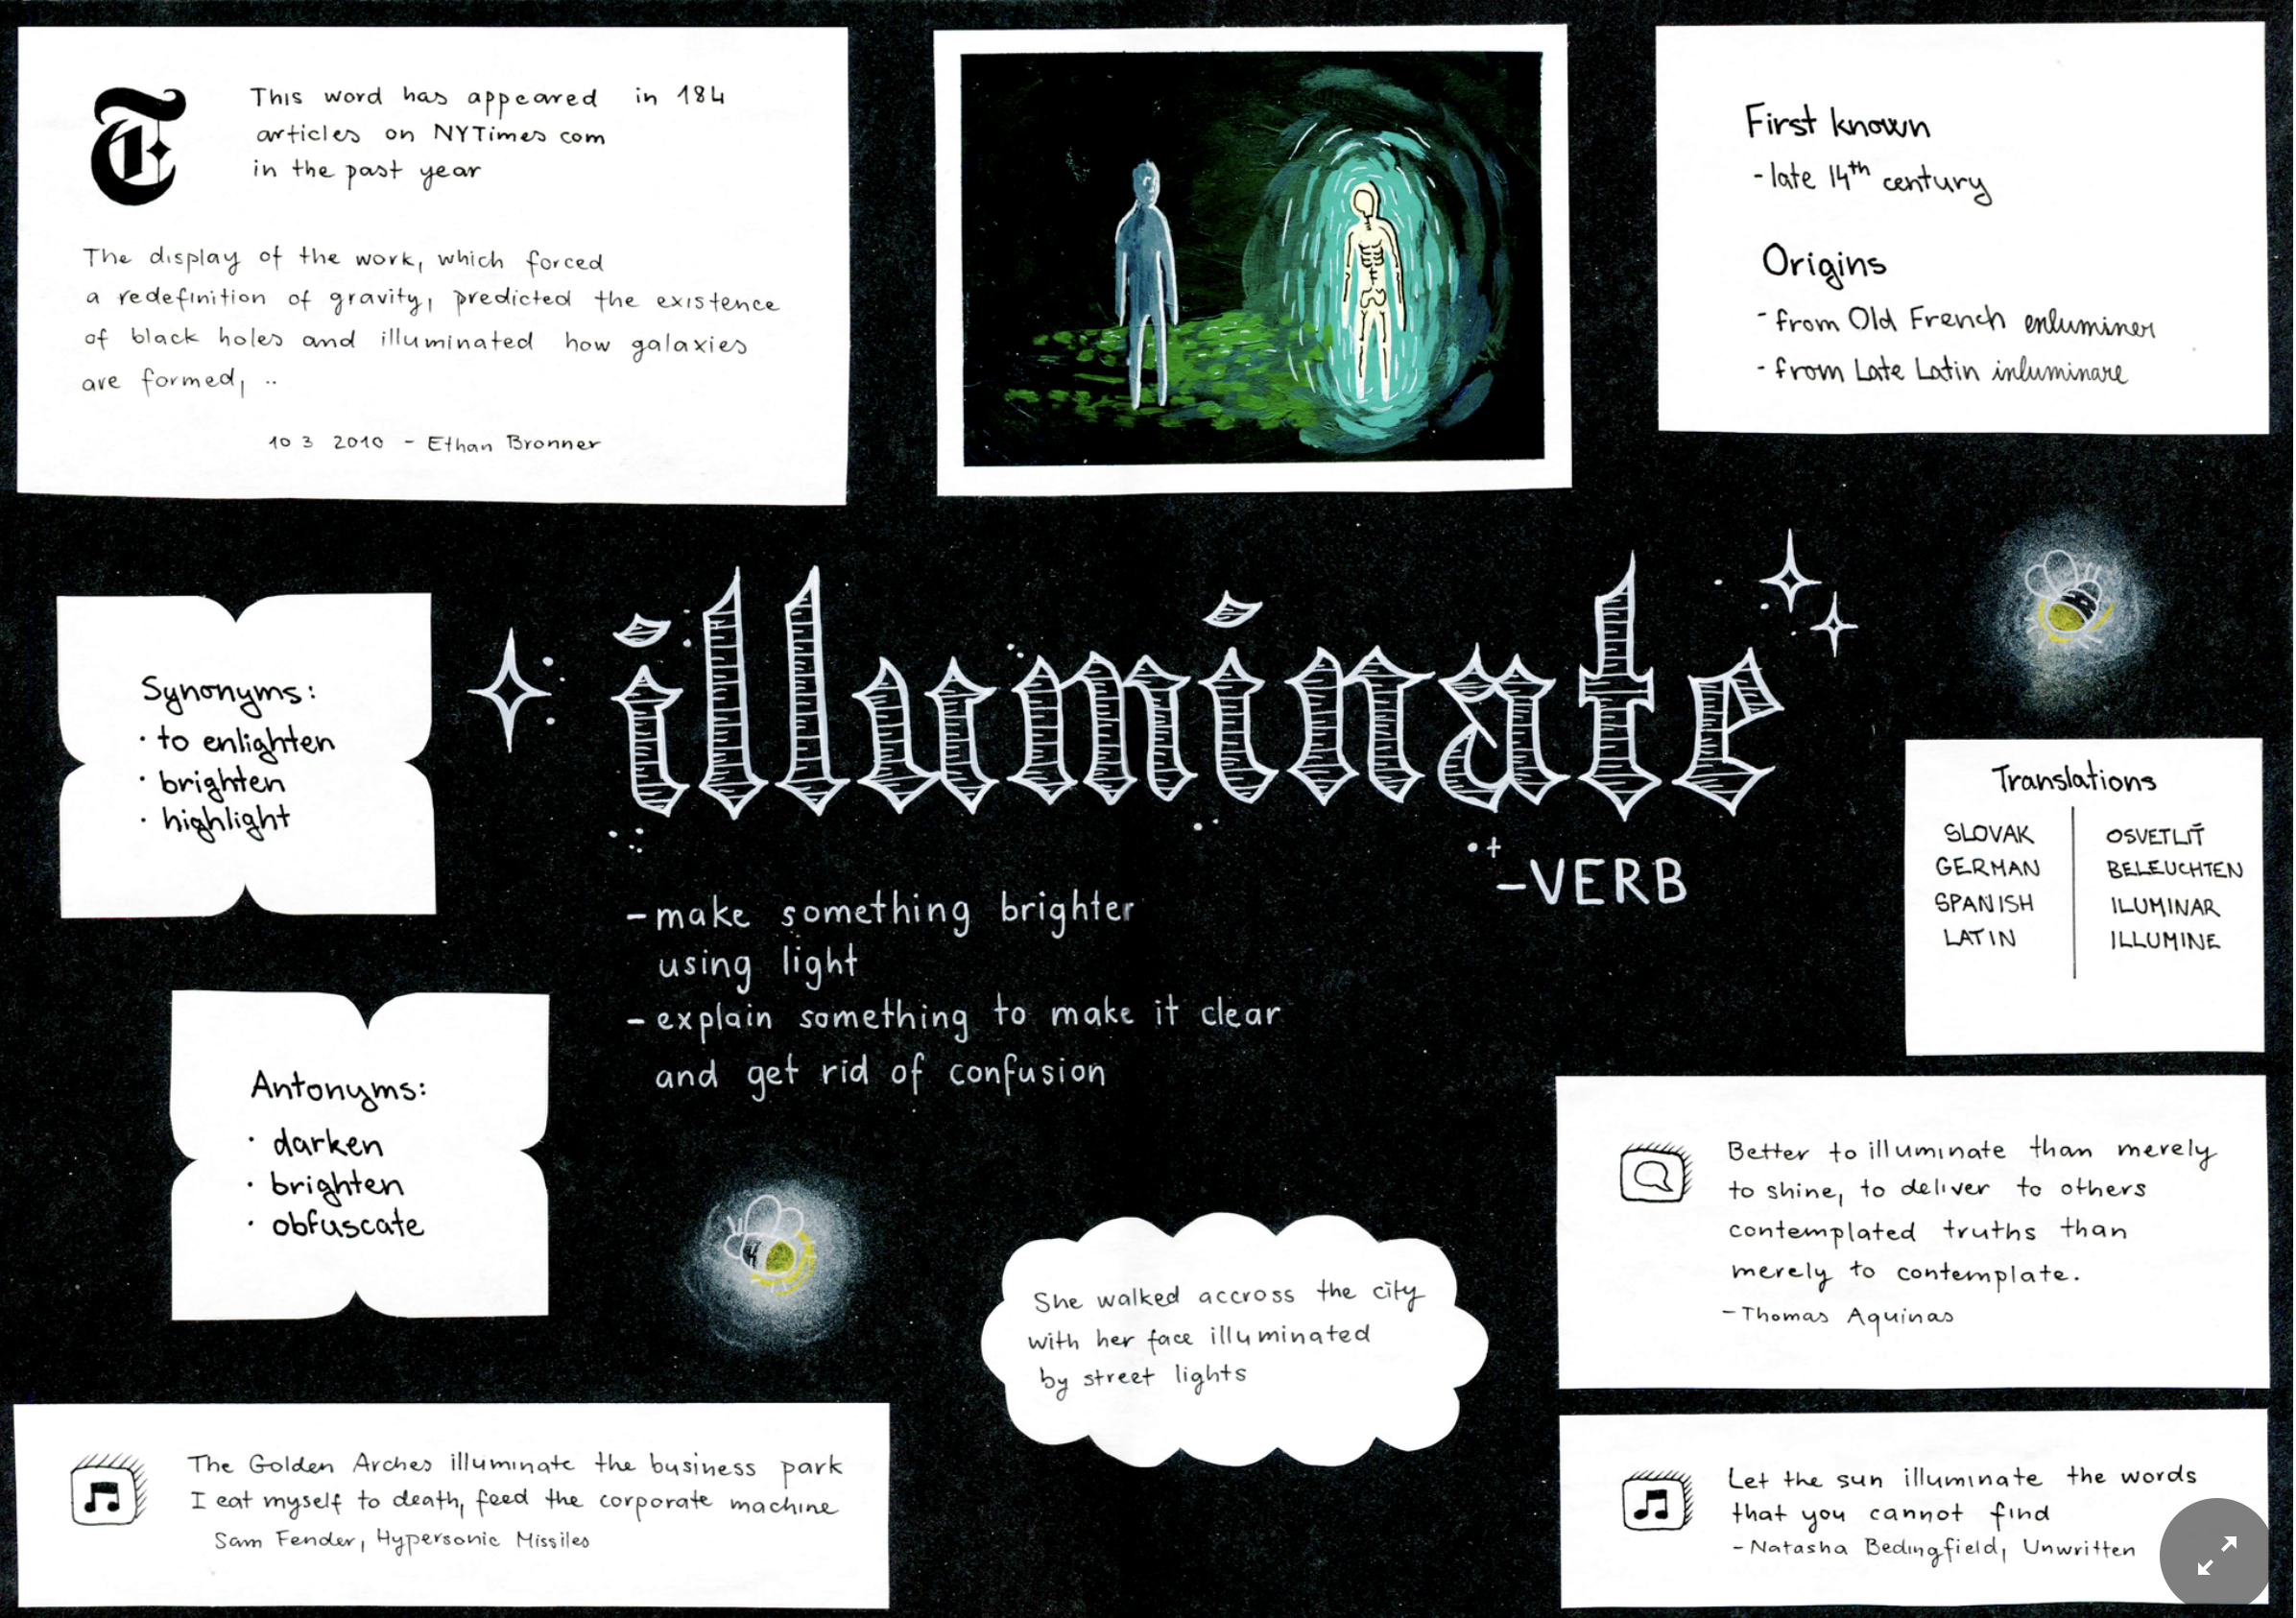 T
This word has appeared in 184
articles on NYTimes com
in the past year
The display of the work, which forced
a redefinition of gravity, predicted the existence
of black holes and illuminated how galaxies
are formed, ..
10 3 2010 - Ethan Bronner
First known
- late 14th century
Origins
- from Old French enluminer
- from Late Latin inluminare
illuminate
- VERB
- make something brighter
using light
- explain something to make it clear
and get rid of confusion
Synonyms:
· to enlighten
· brighten
· highlight
Antonyms:
· darken
· brighten
· obfuscate
Translations
SLOVAK OSVETLIŤ
GERMAN BELEUCHTEN
SPANISH ILUMINAR
LATIN ILLUMINE
Better to illuminate than merely
to shine, to deliver to others
contemplated truths than
merely to contemplate.
- Thomas Aquinas
She walked accross the city
with her face illuminated
by street lights
The Golden Arches illuminate the business park
I eat myself to death, feed the corporate machine
Sam Fender, Hypersonic Missiles
Let the sun illuminate the words
that you cannot find
- Natasha Bedingfield, Unwritten